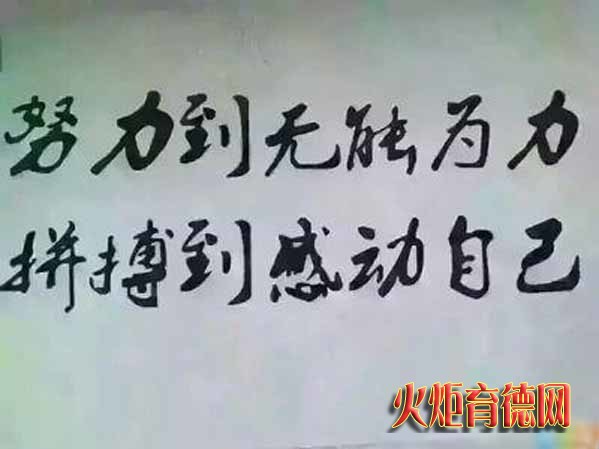 努力到无能为力
拼搏到感动自己
火炬育德网